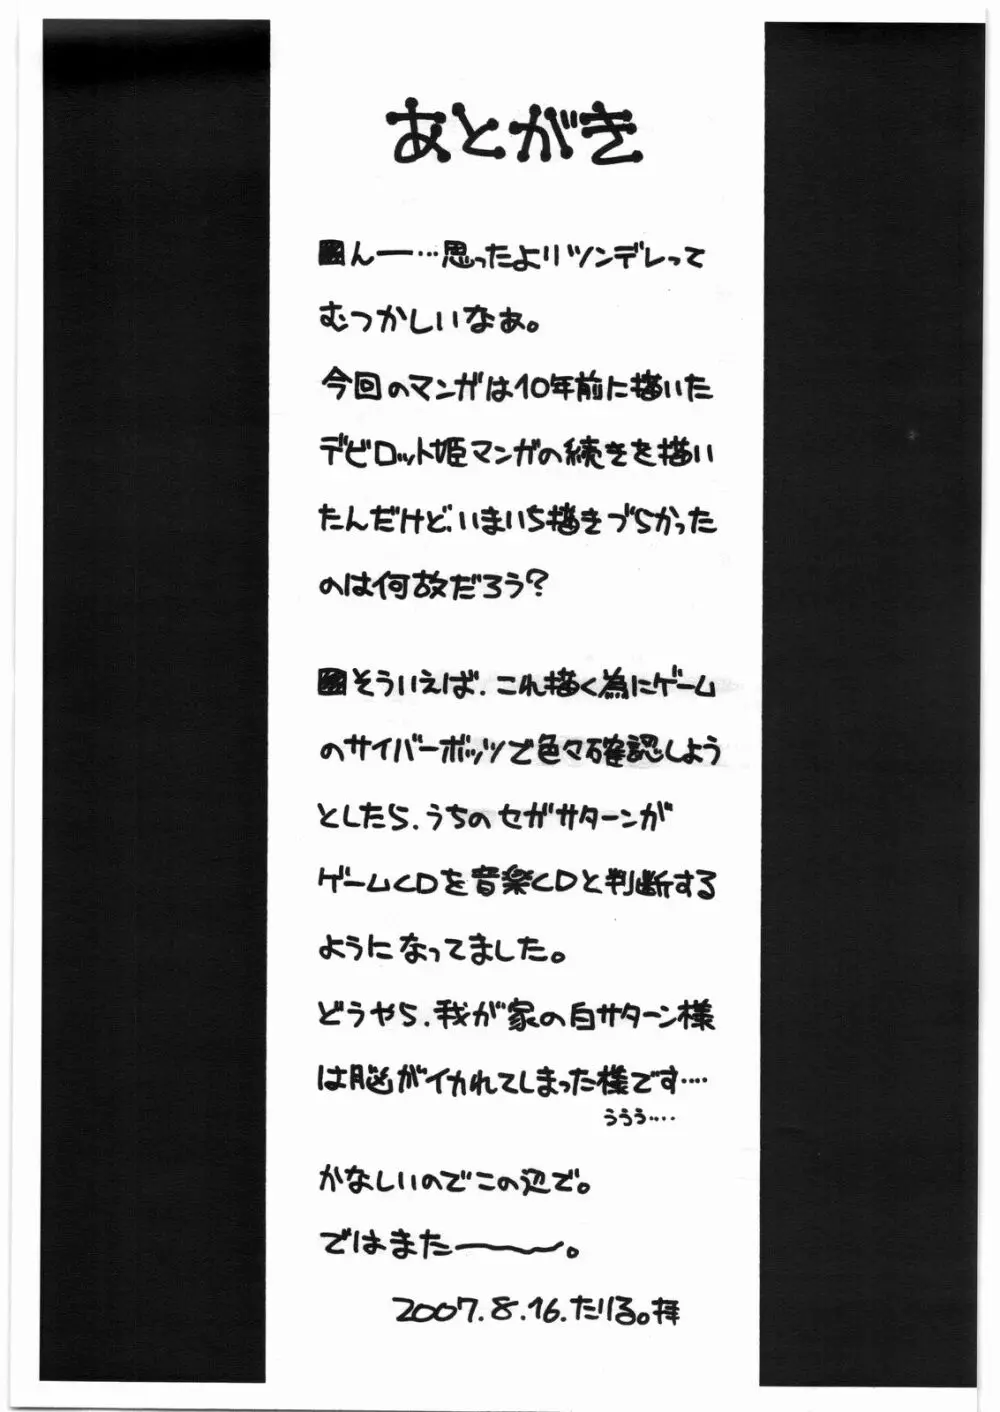 あとがき
んー…思ったよりツンデレって
むつかしいなぁ。
今回のマンガは10年前に描いた
デビロット姫マンガの続きを描い
たんだけど、いまいち描きづらかった
のは何故だろう?
そういえば、これ描く為にゲーム
のサイバーボッツで色々確認しよう
としたら、うちのセガサターンが
ゲームCDを音楽CDと判断する
ようになってました。
どうやら、我が家の白サターン様
は脳がイカれてしまった様です‥‥
ううう‥‥
かなしいのでこの辺で。
ではまた〜。
2007.8.16.たりる。拝